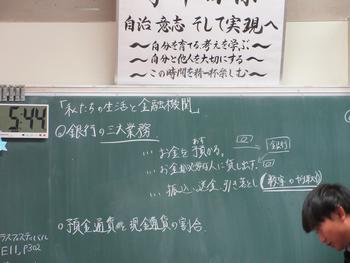 自治 意志 そして実現へ
〜自分を育てる考えを学ぶ〜
〜自分と他人を大切にする〜
〜この時間を精一杯楽しむ〜
5:44
「私たちの生活と金融機関」
銀行の三大業務
… お金を預かる。
あず
銀行
… お金が必要な人に貸し出す。
… 振込、送金、引き落とし
預金通貨と現金通貨の割合
E11, P302